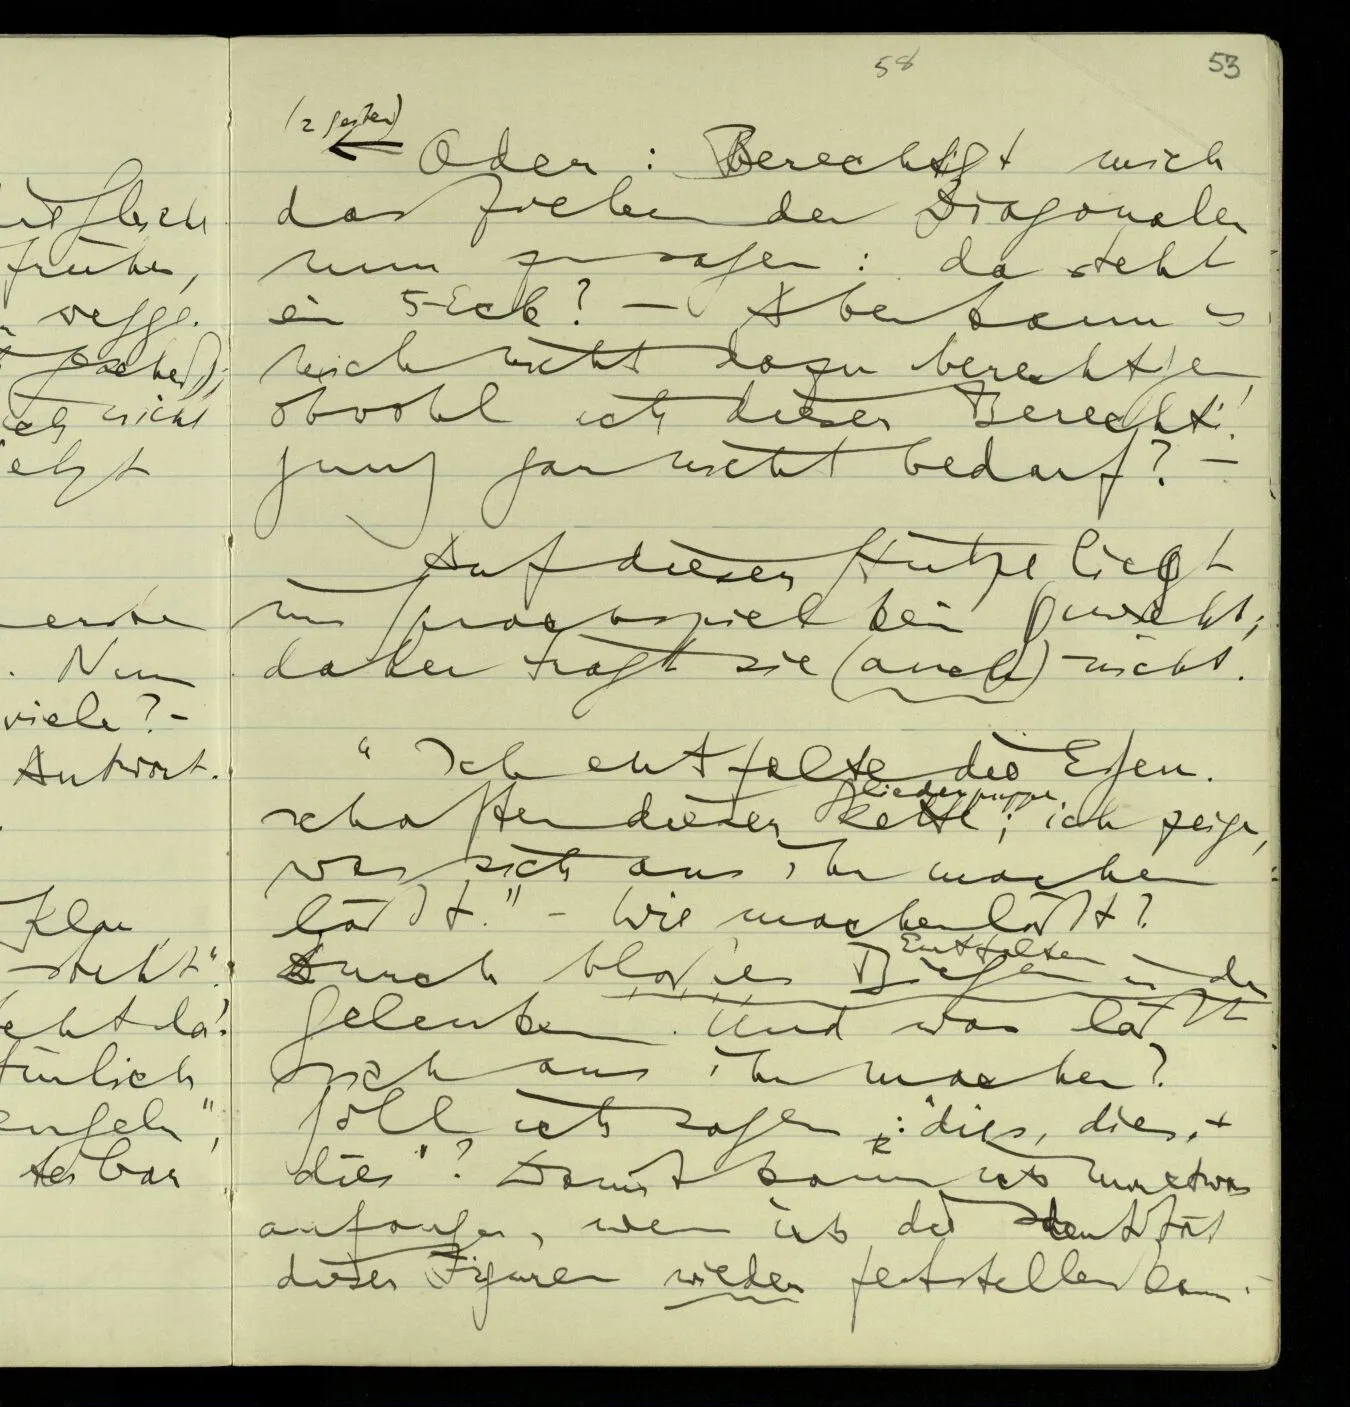 58
53
(2 Seiten)
← Oder: Berechtigt mich
das Ziehen der Diagonalen
nun zu sagen: da steht
ein 5-Eck? — Aber kann es
mich nicht dazu berechtigen,
obwohl ich dieser Berechti-
gung gar nicht bedarf? —
Auf dieser Stütze liegt
im Sprachspiel kein Gewicht;
daher trägt sie (auch) nicht.
"Ich entfalte die Eigen-
Gliederpuppe
schaften dieser Kette; ich zeige,
was sich aus ihr machen
läßt." – Wie machen läßt?
Entfalten
Durch bloßes Biegen in den
Gelenken. Und was läßt
sich aus ihr machen?
Soll ich sagen: "dies, dies, +
dies"? Damit kann ich nur etwas
anfangen, wenn ich die Identität
dieser Figuren wieder feststellen kann.–
früher,
nicht
jetzt
erste
. Nun
viele? –
Antwort.
steht".
steht da?